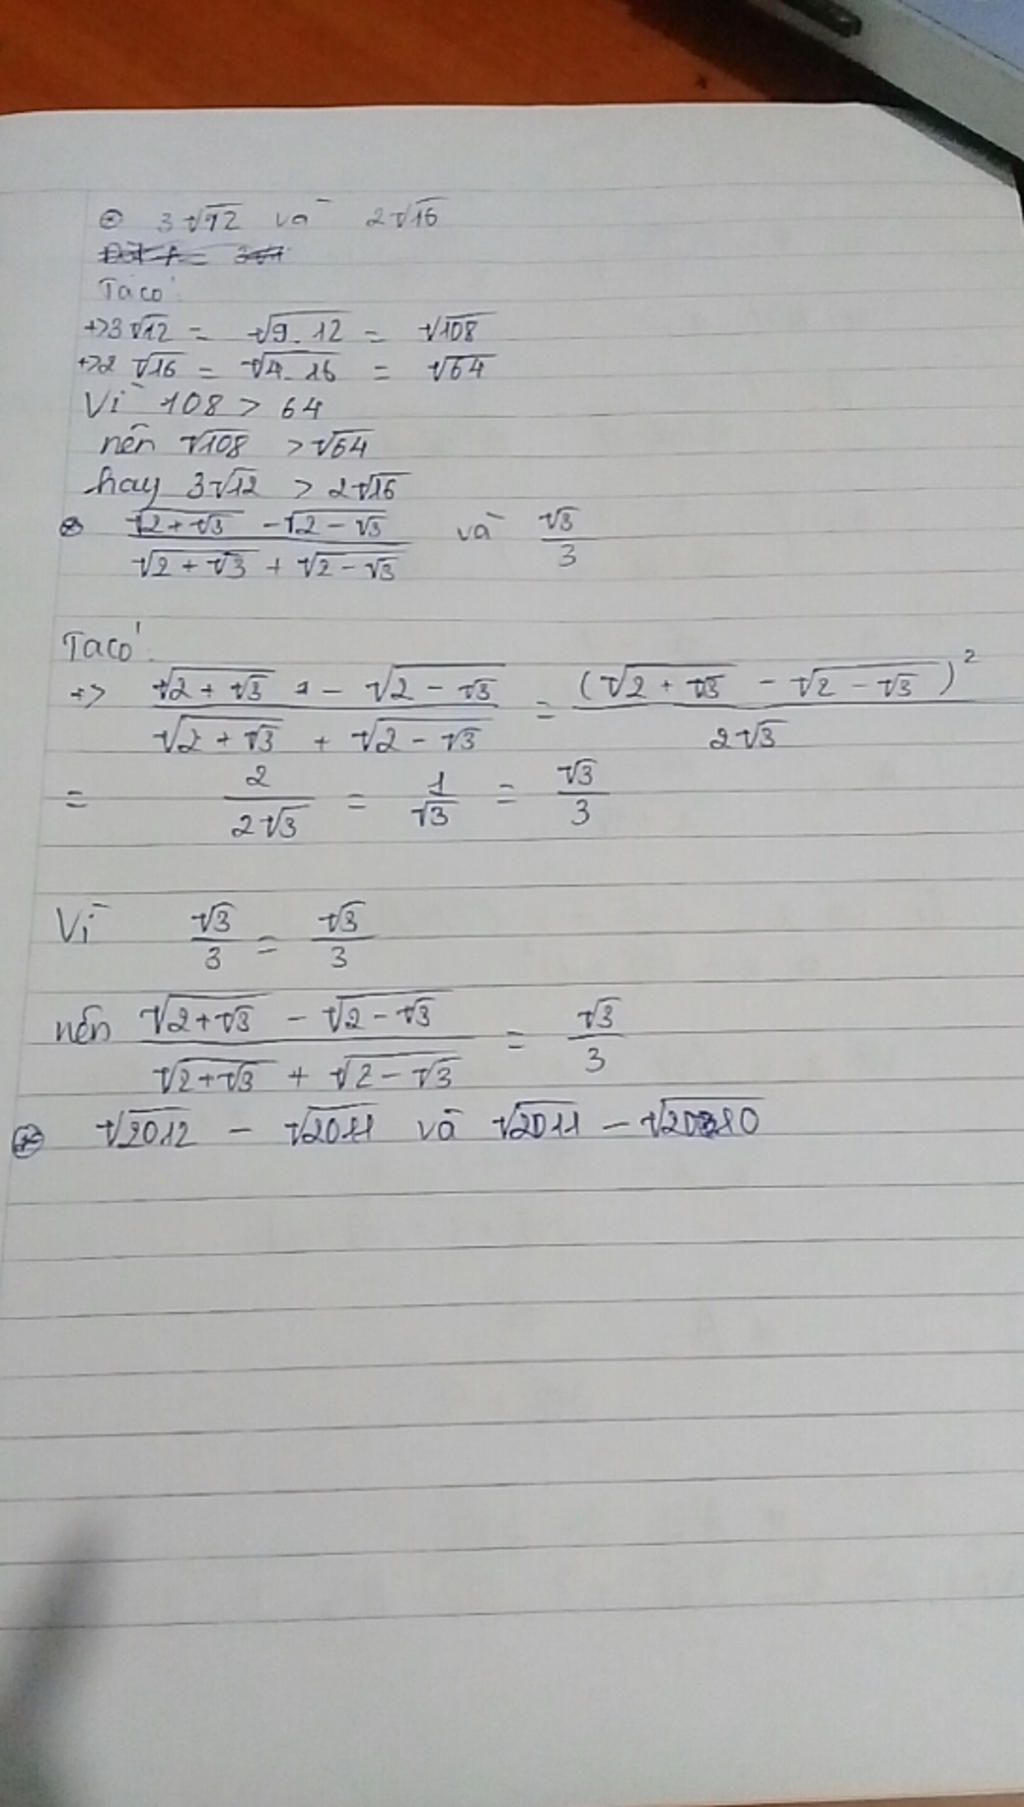 ⊛ 3√12 và 2√16
Ta có:
+> 3√12 = √9.12 = √108
+> 2√16 = √4.16 = √64
Vì 108 > 64
nên √108 > √64
hay 3√12 > 2√16
⊛ (√(2+√3) - √(2-√3)) / (√(2+√3) + √(2-√3)) và √3/3
Ta có:
+> (√(2+√3) - √(2-√3)) / (√(2+√3) + √(2-√3)) = (√(2+√3) - √(2-√3))² / 2√3
= 2/2√3 = 1/√3 = √3/3
Vì √3/3 = √3/3
nên (√(2+√3) - √(2-√3)) / (√(2+√3) + √(2-√3)) = √3/3
⊛ √2012 - √2011 và √2011 - √2010